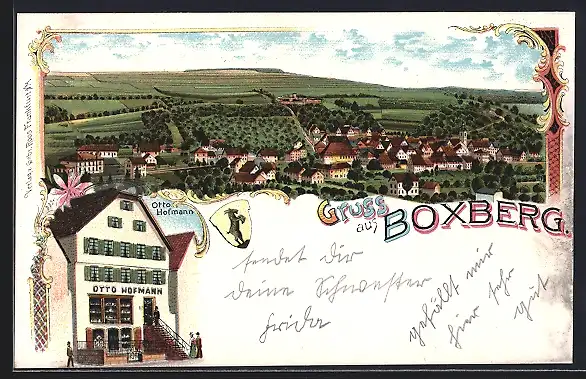 Otto
Hofmann
Gruss
aus
BOXBERG.
OTTO HOFMANN
sendet dir
deine Schwester
Frida
gefällt mir
hier sehr
gut